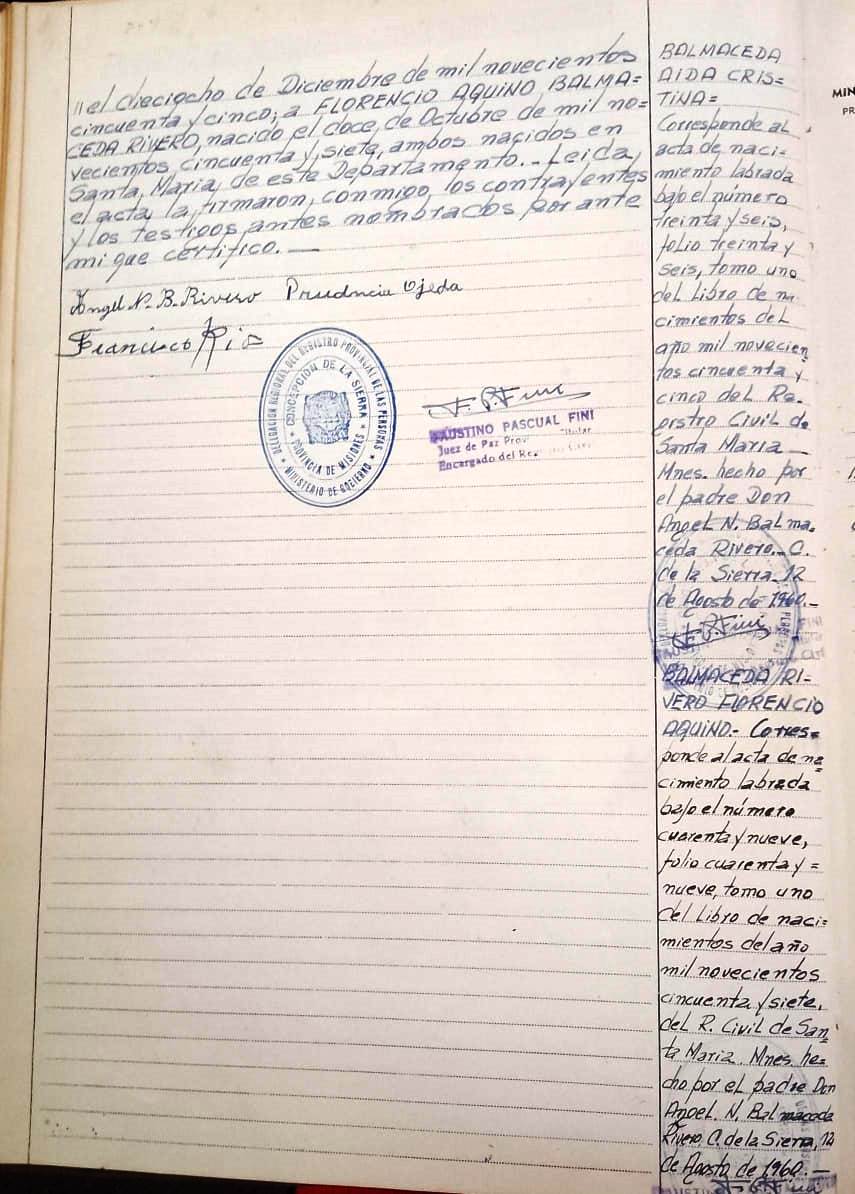 el dieciocho de Diciembre de mil novecientos
cincuenta y cinco; a FLORENCIO AQUINO BALMA=
CEDA RIVERO, nacido el doce de Octubre de mil no=
vecientos cincuenta y siete, ambos nacidos en
Santa Maria, de este Departamento.- Leida
el acta la firmaron, conmigo los contrayentes
y los testigos antes nombrados por ante
mi que certifico.—
Angel N. B. Rivero Prudencia Ojeda
Francisco Rio
DELEGACION REGIONAL DEL REGISTRO PROVINCIAL DE LAS PERSONAS
CONCEPCION DE LA SIERRA
PROVINCIA DE MISIONES
MINISTERIO DE GOBIERNO
F. P. Fini
FAUSTINO PASCUAL FINI
Juez de Paz Titular
Encargado del
BALMACEDA
AIDA CRIS=
TINA=
Corresponde al
acta de naci=
miento labrada
bajo el número
treinta y seis,
folio treinta y
seis, tomo uno
del libro de na
cimientos del
año mil novecien
tos cincuenta y
cinco del Re-
gistro Civil de
Santa Maria —
Mnes. hecho por
el padre Don
Angel N. Balma-
ceda Rivero.- C.
de la Sierra. 12
de Agosto de 1960.-
F. P. Fini
BALMACEDA RI-
VERO FLORENCIO
AQUINO.- Corres=
ponde al acta de na
cimiento labrada
bajo el número
cuarenta y nueve,
folio cuarenta y =
nueve, tomo uno
del Libro de naci=
mientos del año
mil novecientos
cincuenta y siete,
del R. Civil de San
ta Maria. Mnes. he=
cho por el padre Don
Angel. N. Balmaceda
Rivero C. de la Sierra, 12
de Agosto de 1960.—
F. P. Fini
MIN
PR